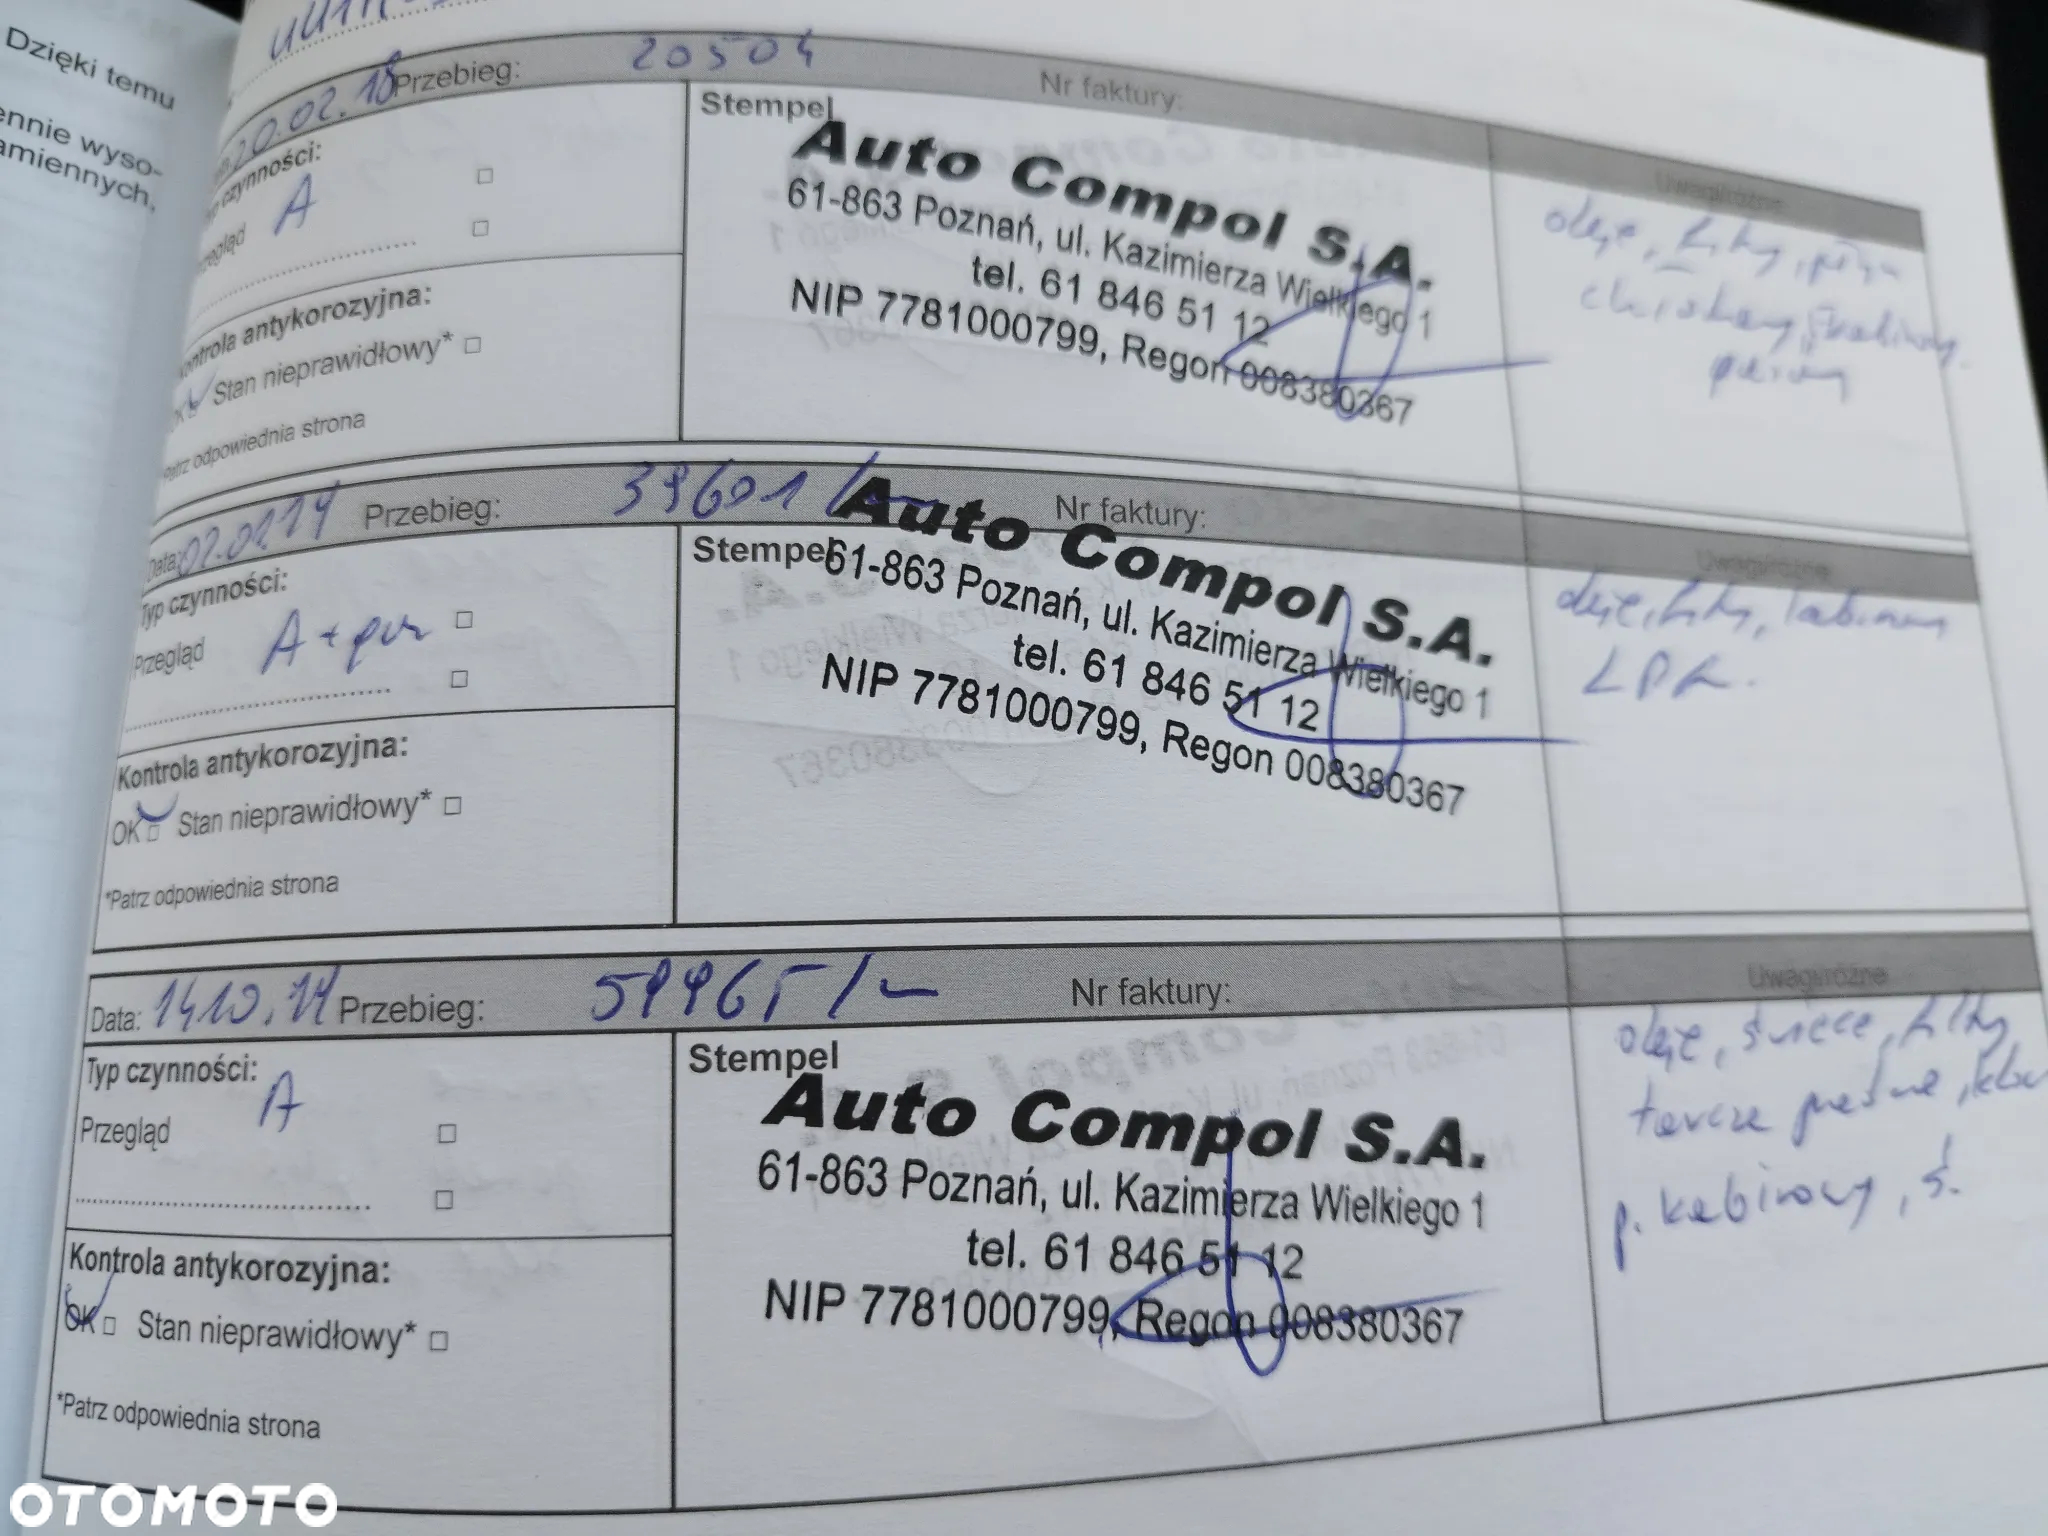 Dzięki temu
ennie wyso-
amiennych,
20.02.18 Przebieg: 20504 Nr faktury:
czynności:
A
Stempel
Auto Compol S.A.
61-863 Poznań, ul. Kazimierza Wielkiego 1
tel. 61 846 51 12
NIP 7781000799, Regon 008380367
Uwagi/różne
oleje, filtry, płyn
kabinowy
Kontrola antykorozyjna:
OK □ Stan nieprawidłowy* □
*Patrz odpowiednia strona
Data: Przebieg: 39601 /~ Nr faktury:
Typ czynności:
Przegląd A + □
□
Stempel
Auto Compol S.A.
61-863 Poznań, ul. Kazimierza Wielkiego 1
tel. 61 846 51 12
NIP 7781000799, Regon 008380367
Uwagi/różne
oleje, filtry, kabinowy
Kontrola antykorozyjna:
OK □ Stan nieprawidłowy* □
*Patrz odpowiednia strona
Data: Przebieg: Nr faktury:
Typ czynności:
A
Przegląd □
□
Stempel
Auto Compol S.A.
61-863 Poznań, ul. Kazimierza Wielkiego 1
tel. 61 846 51 12
NIP 7781000799, Regon 008380367
Uwagi/różne
oleje, świece, filtry
tarcze
p. kabinowy, ś.
Kontrola antykorozyjna:
OK □ Stan nieprawidłowy* □
*Patrz odpowiednia strona
OTOMOTO